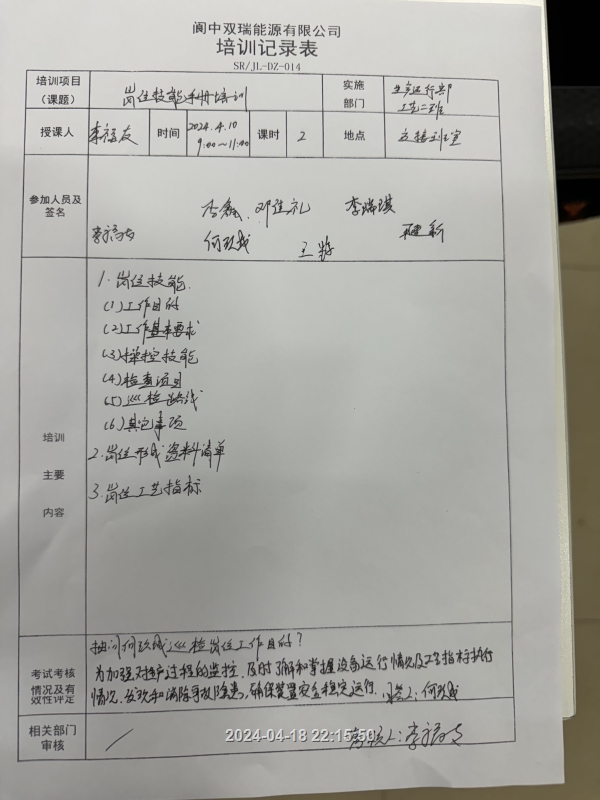 阆中双瑞能源有限公司
培训记录表
SR/JL-DZ-014
培训项目
（课题）
岗位技能手册培训
实施
部门
生产运行部
工艺二班
授课人
时间
2024.4.10
9:00~11:00
课时
2
地点
参加人员及
签名
邓佳礼
李瑞琪
何玖成
王
新
培训
主要
内容
1.岗位技能.
(1)工作目的
(2)工作基本要求
(3)操控技能
(4)检查项目
(5)巡检路线
(6)其它事项
2.岗位形成资料清单
3.岗位工艺指标
考试考核
情况及有
效性评定
抽问何玖成巡检岗位工作目的?
为加强对生产过程的监控,及时了解和掌握设备运行情况及工艺指标执行
情况,发现和消除事故隐患,确保装置安全稳定运行. 何玖成
相关部门
审核
/
2024-04-18 22:15:50